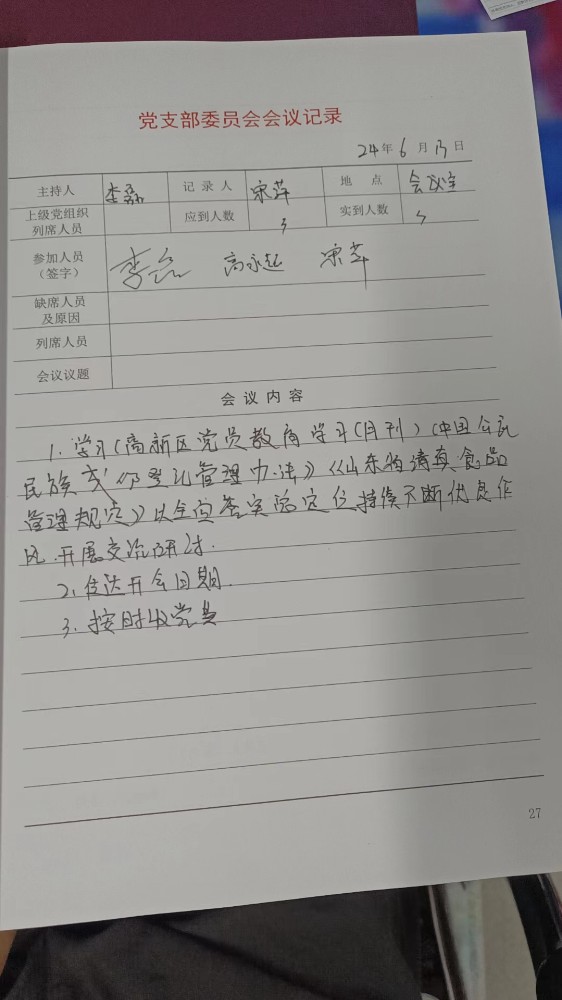 党支部委员会会议记录
24年6月13日
主持人 李磊 记录人 宋萍 地点 会议室
上级党组织列席人员 应到人数 3 实到人数 3
参加人员（签字） 李磊 高永起 宋萍
缺席人员及原因
列席人员
会议议题
会议内容
1、学习《高新区党员教育学习(月刊)》《中国公民
民族成份登记管理办法》《山东省清真食品
管理规定》以 实 定位持续不断优良作
风.开展交流研讨.
2、传达开会日期.
3、按时收党费
27